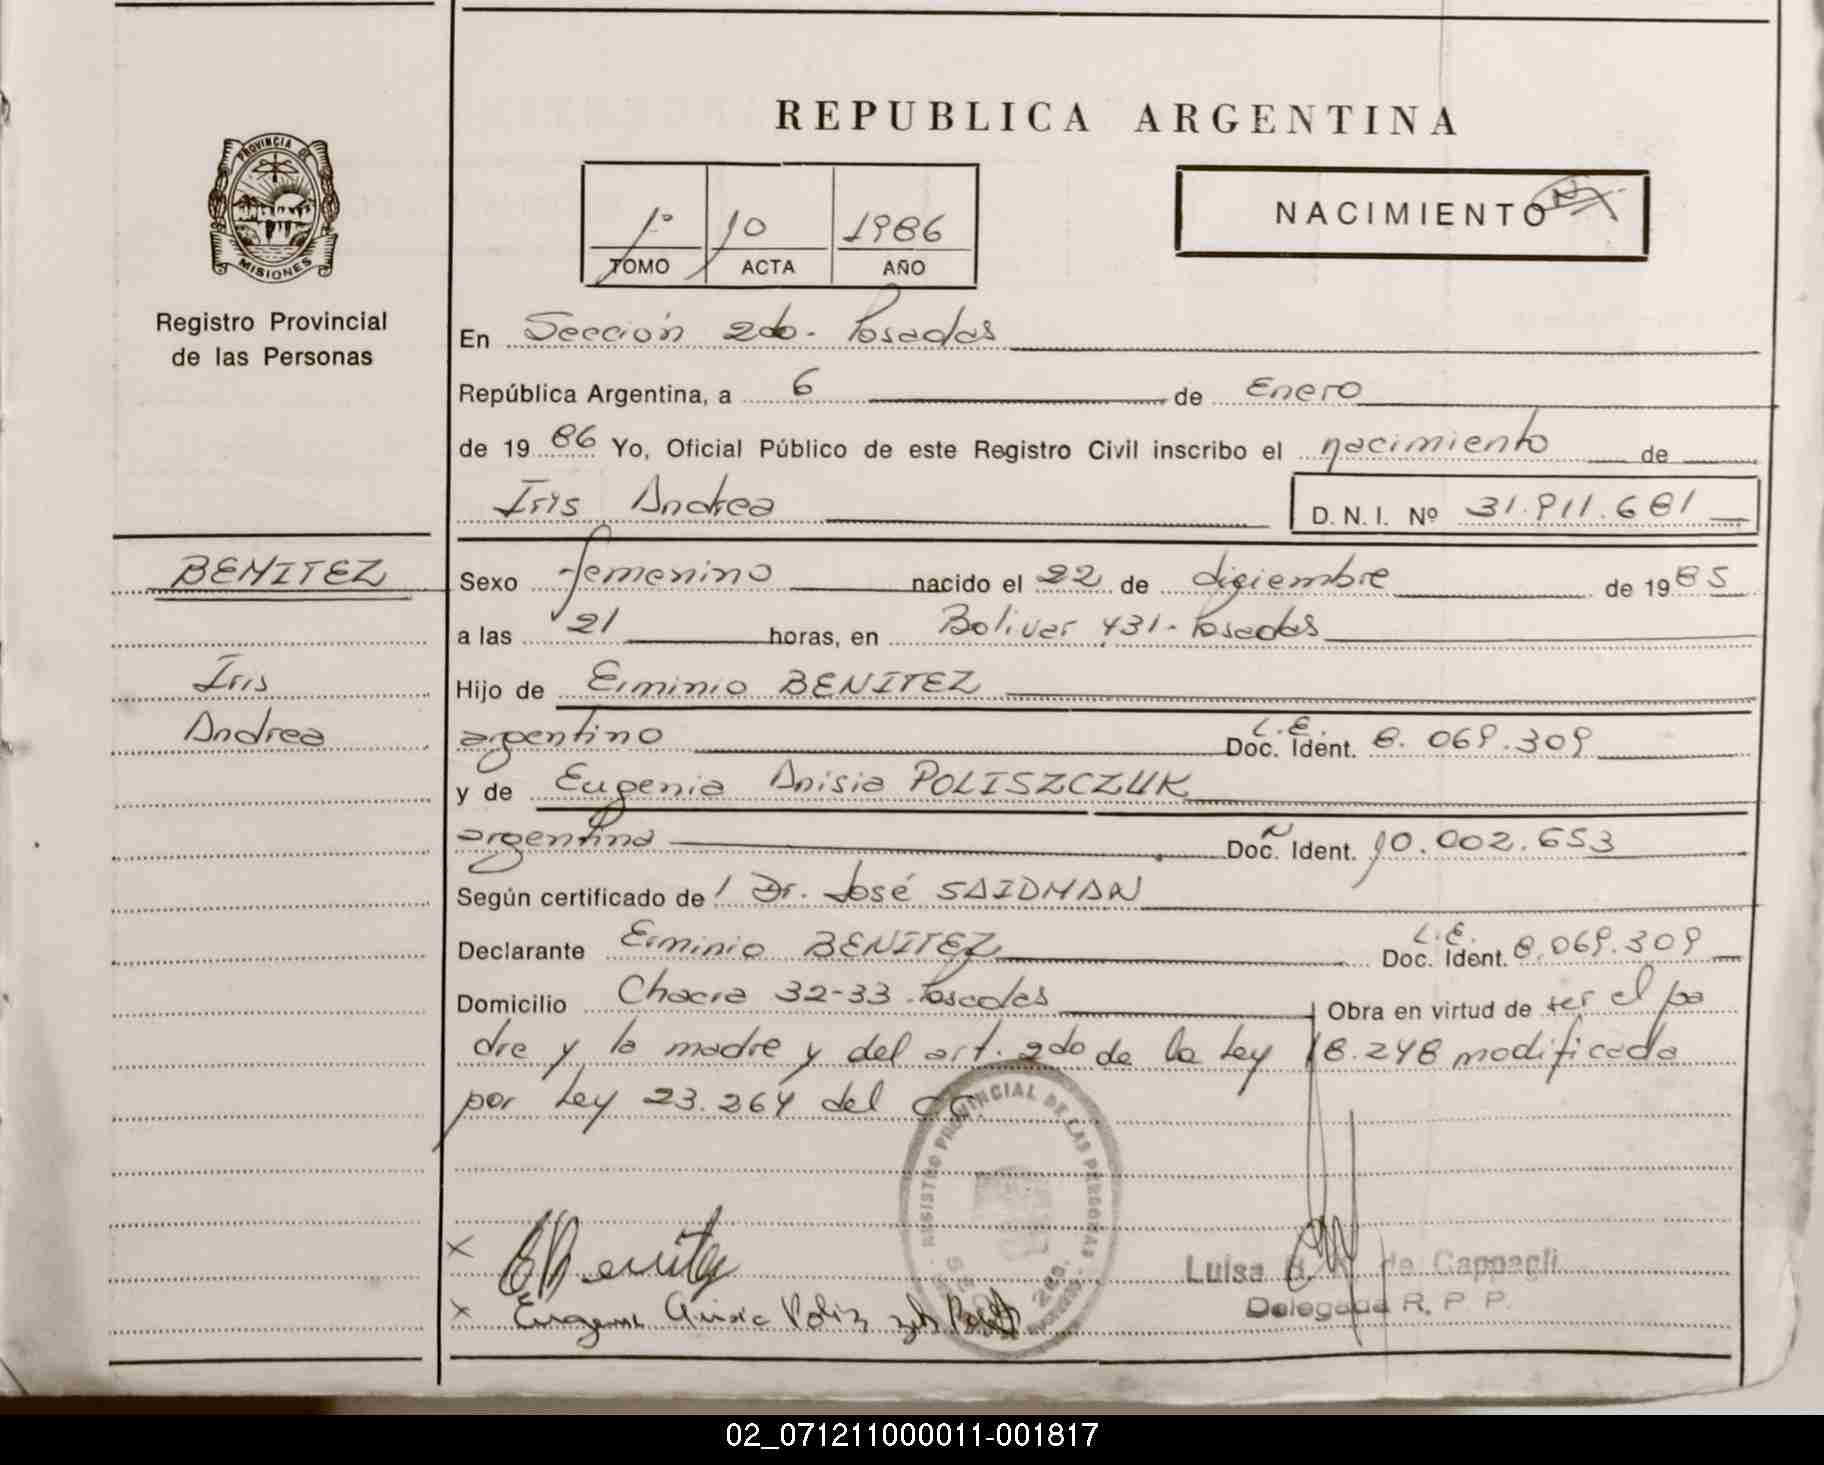 REPUBLICA ARGENTINA
PROVINCIA DE
MISIONES
Registro Provincial
de las Personas
1º 10 1986
TOMO ACTA AÑO
NACIMIENTO
En Sección 2do. Posadas
República Argentina, a 6 de Enero
de 19 86 Yo, Oficial Público de este Registro Civil inscribo el nacimiento de
Iris Andrea D.N.I. Nº 31.911.681
BENITEZ
Iris
Andrea
Sexo femenino nacido el 22 de diciembre de 1985
a las 21 horas, en Bolivar 431 - Posadas
Hijo de Erminio BENITEZ
argentino L.E. Doc. Ident. 8.069.309
y de Eugenia Anisia POLISZCZUK
argentina Doc. Ident. 10.002.653
Según certificado de Dr. José SAIDMAN
Declarante Erminio BENITEZ L.E. Doc. Ident. 8.069.309
Domicilio Chacra 32-33 - Posadas Obra en virtud de ser el pa
dre y la madre y del art. 2do de la Ley 18.248 modificada
por Ley 23.264 del C.C.
REGISTRO PROVINCIAL DE LAS PERSONAS
x Benitez
x Eugenia Anisia
Luisa de Cappagli
Delegada R. P. P.
02_071211000011-001817